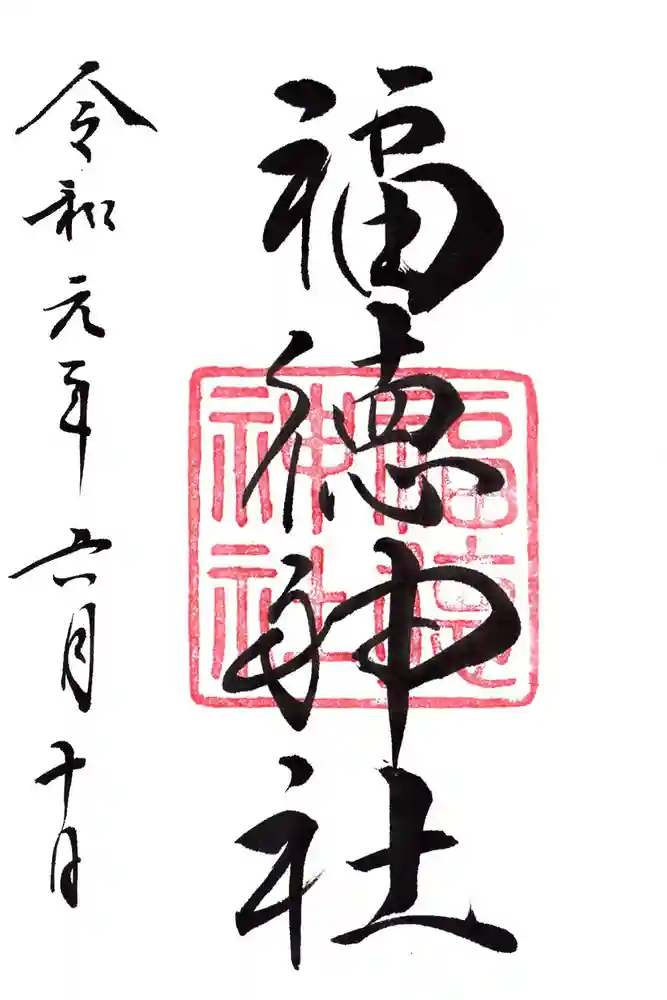 福徳神社
令和元年六月十日
福徳
神社